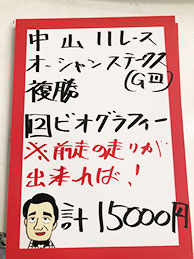 中山11レース
オーシャンステークス
(GⅢ)
複勝
2ビオグラフィー
※前走の走りが
出来れば!
計15000円